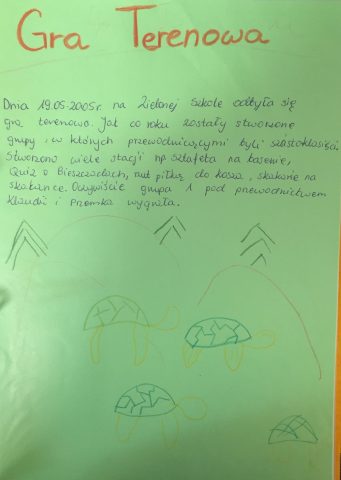 Gra Terenowa
Dnia 19.05.2005r. na Zielonej Szkole odbyła się
gra terenowa. Jak co roku zostały stworzone
grupy, w których przewodniczącymi byli szóstoklasiści.
Stworzono wiele stacji np. sztafeta na basenie,
Quiz o Bieszczadach, rzut piłką do kosza, skakanie na
skakance. Oczywiście grupa 1 pod przewodnictwem
Klaudii i Przemka wygrała.